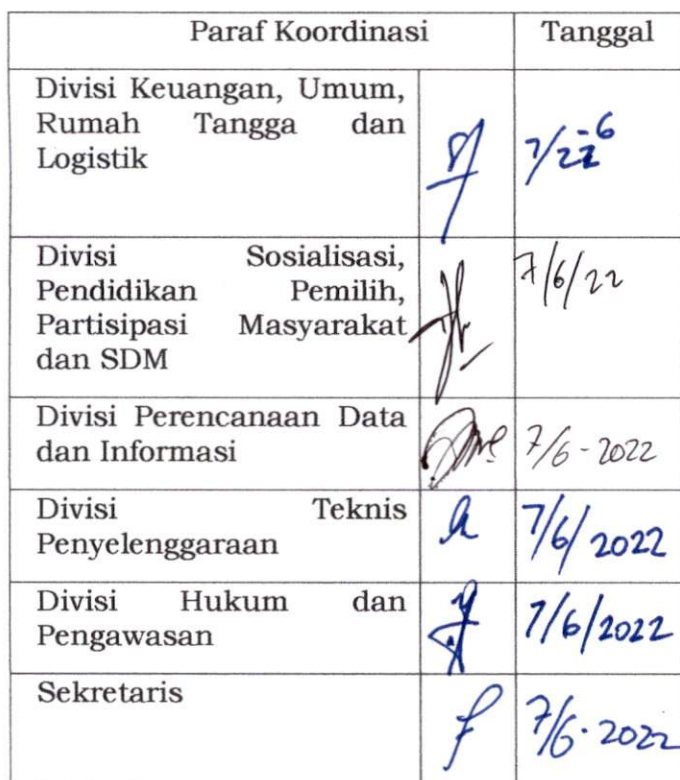 Paraf Koordinasi Tanggal
Divisi Keuangan, Umum,
Rumah Tangga dan
Logistik
7/22-6
Divisi Sosialisasi,
Pendidikan Pemilih,
Partisipasi Masyarakat
dan SDM
7/6/22
Divisi Perencanaan Data
dan Informasi
7/6-2022
Divisi Teknis
Penyelenggaraan
7/6/2022
Divisi Hukum dan
Pengawasan
7/6/2022
Sekretaris
7/6-2022